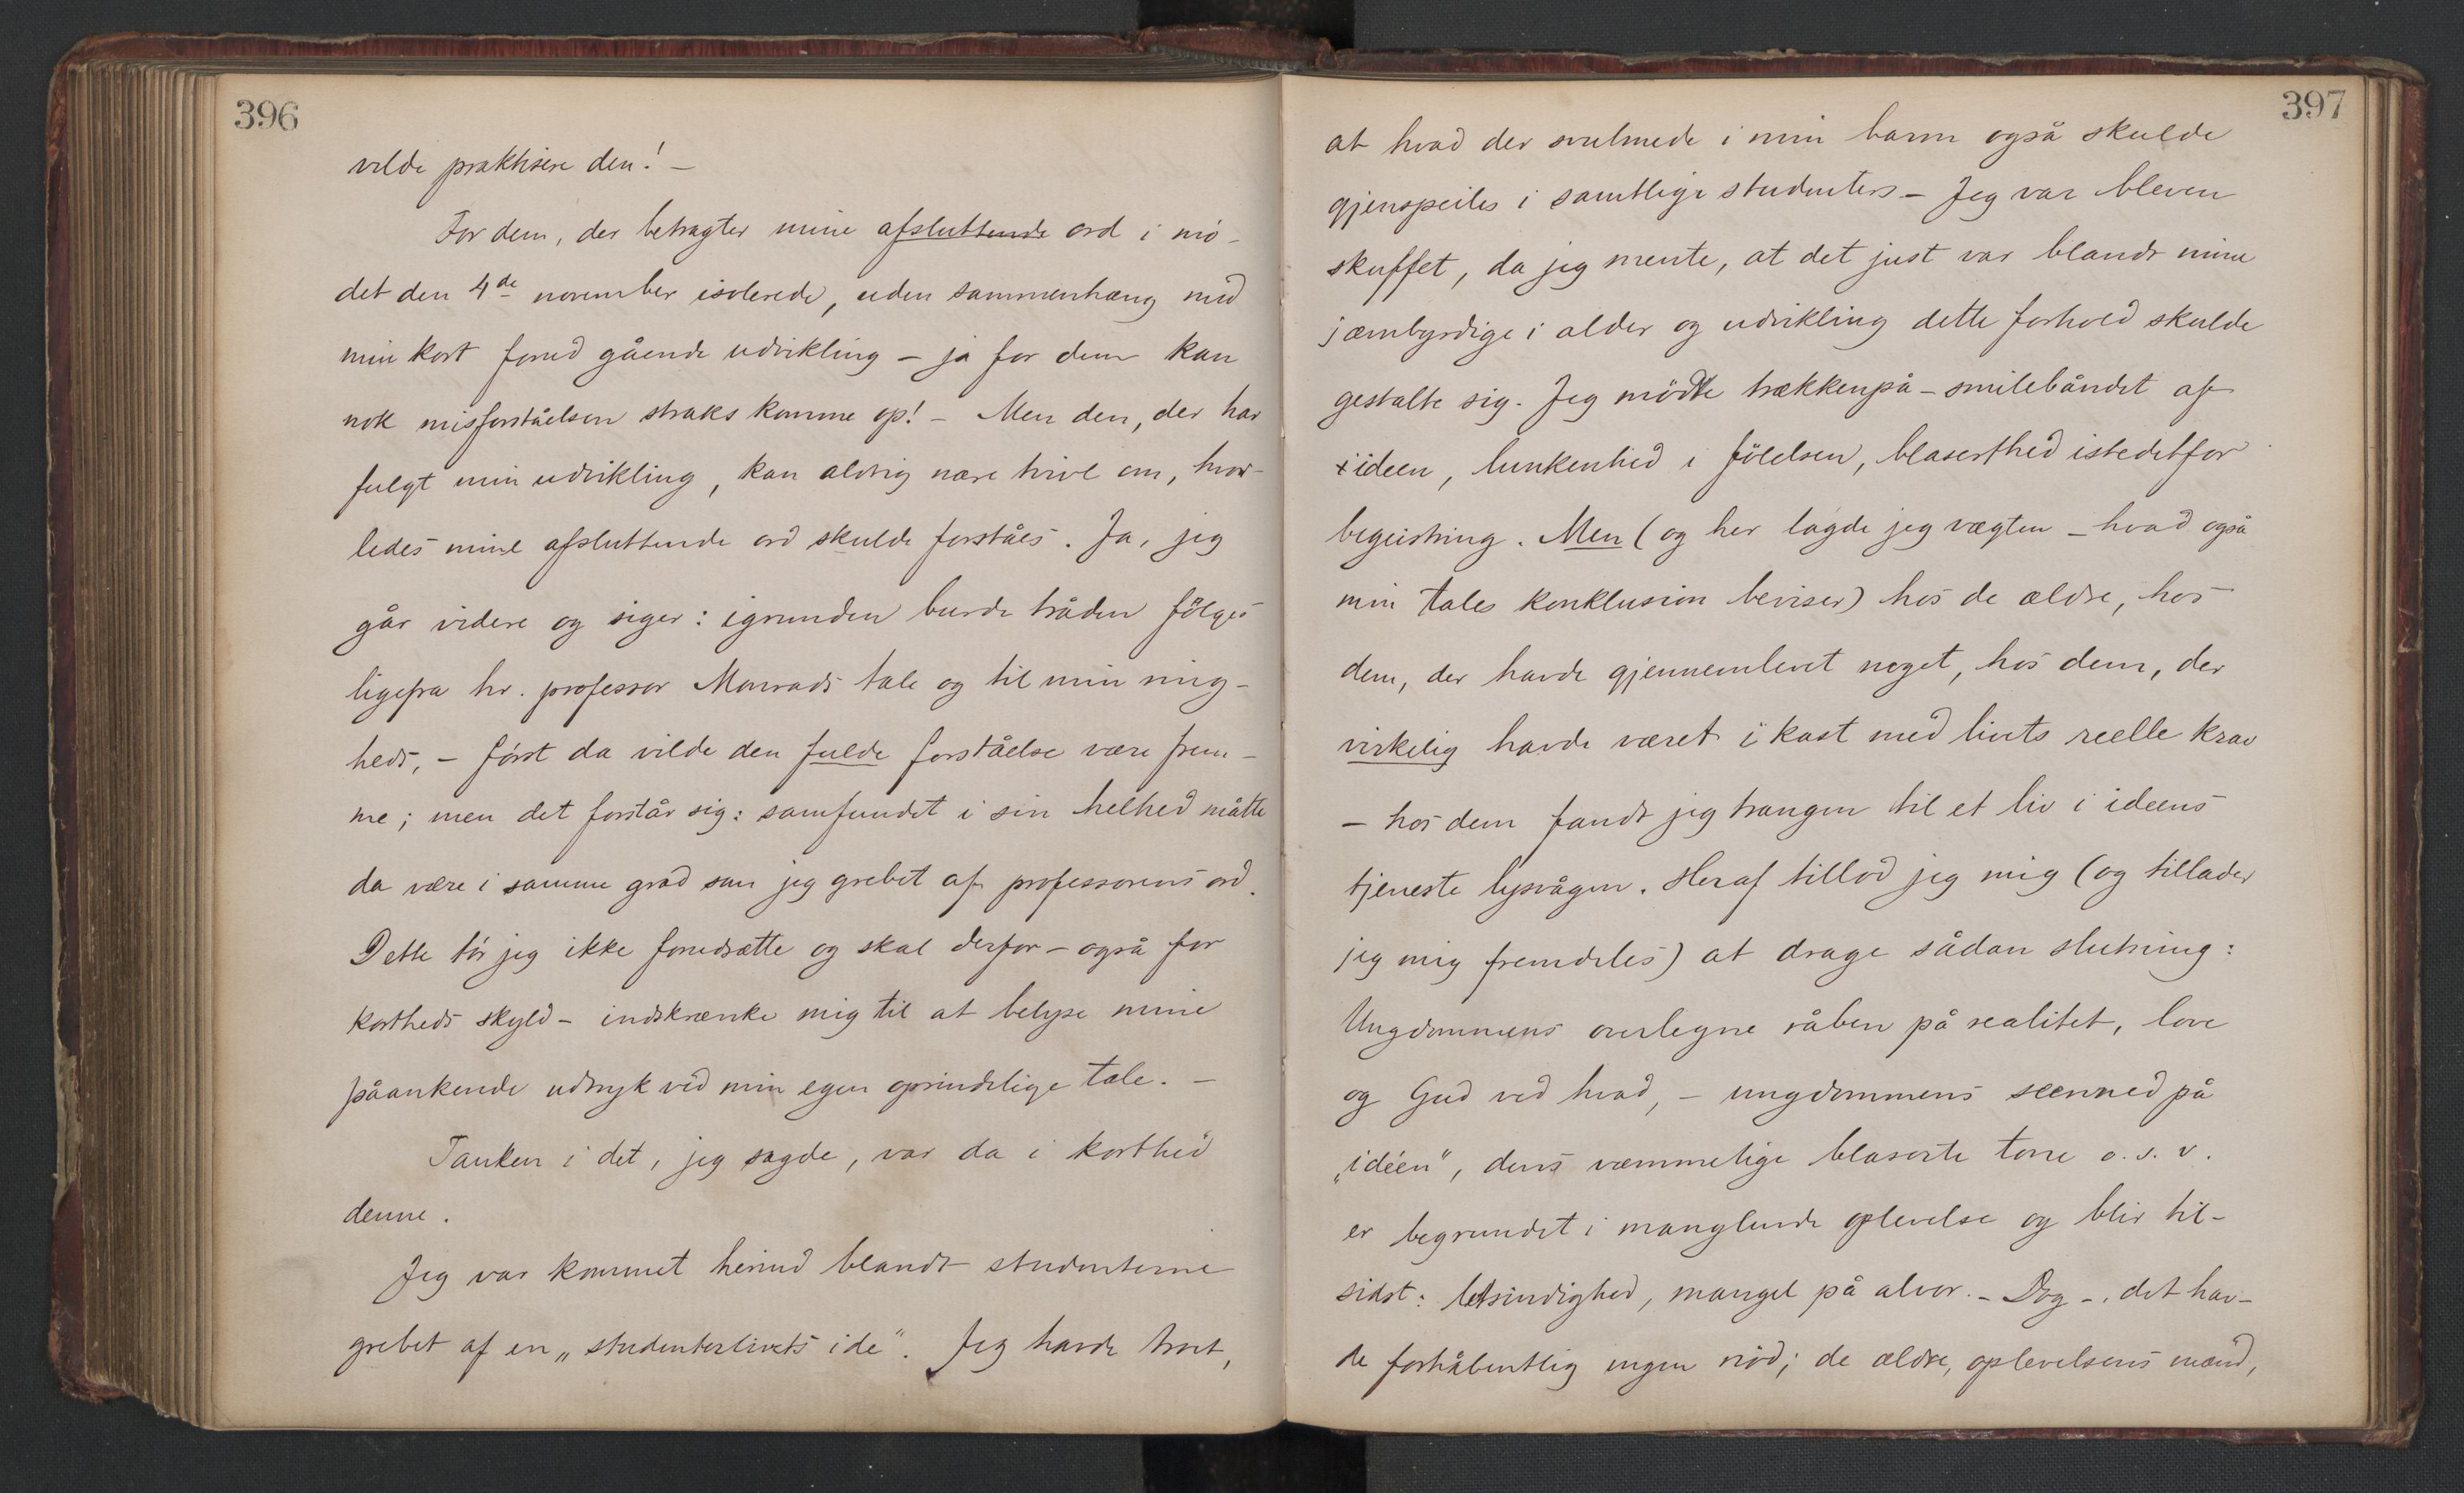 396
vilde praktisere den! –
For dem, der betragter mine afsluttende ord i mö-
det den 4de november isolerede, uden sammenhæng med
min kort forud gående udvikling – ja for dem kan
nok misforståelsen straks komme op! – Men den, der har
fulgt min udvikling, kan aldrig nære tvivl om, hvor-
ledes mine afsluttende ord skulde forståes. Ja, jeg
går videre og siger: igrunden burde tråden fölges
ligefra hr. professor Monrads tale og til min ring-
heds, – först da vilde den fulde forståelse være frem-
me; men det forstår sig: samfundet i sin helhed måtte
da være i samme grad som jeg grebet af professorens ord.
Dette tör jeg ikke forudsætte og skal derfor – også for
kortheds skyld – indskrænke mig til at belyse mine
påankende udtryk ved min egen oprindelige tale. –
Tanken i det, jeg sagde, var da i korthed
denne.
Jeg var kommet herind blandt studenterne
grebet af en „studenterlivets ide". Jeg havde troet,
397
at hvad der svulmede i min barm også skulde
gjenspeiles i samtlige studenters – Jeg var bleven
skuffet, da jeg mente, at det just var blandt mine
jæmbyrdige i alder og udvikling dette forhold skulde
gestalte sig. Jeg mödte trækkenpå-smilebåndet af
ideen, lunkenhed i fölelsen, blaserthed istedetfor
begeistring. Men (og her lagde jeg vægten – hvad også
min tales konklusion beviser) hos de ældre, hos
dem, der havde gjennemlevet noget, hos dem, der
virkelig havde været i kast med livets reelle krav
– hos dem fandt jeg trangen til et liv i ideens
tjeneste lysvågen. Heraf tillod jeg mig (og tillader
jeg mig fremdeles) at drage sådan slutning:
Ungdommens overlegne råben på realitet, love
og Gud ved hvad, – ungdommens seenned på
„idéen", dens væmmelige blaserte tone o. s. v.
er begrundet i manglende oplevelse og blir til-
sidst: letsindighed, mangel på alvor. – Dog –, det hav-
de forhåbentlig ingen nöd; de ældre, oplevelsens mænd,